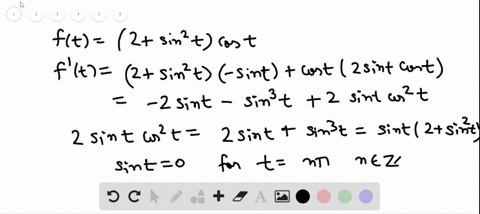 1 2 3 4 5 6
f(t) = (2 + sin²t) cost
f'(t) = (2 + sin²t)(-sint) + cost (2 sint cost)
= -2 sint - sin³t + 2 sint cos²t
2 sint cos²t = 2 sint + sin³t = sint (2 + sin²t)
sint = 0 for t = nπ n ∈ ℤ
A